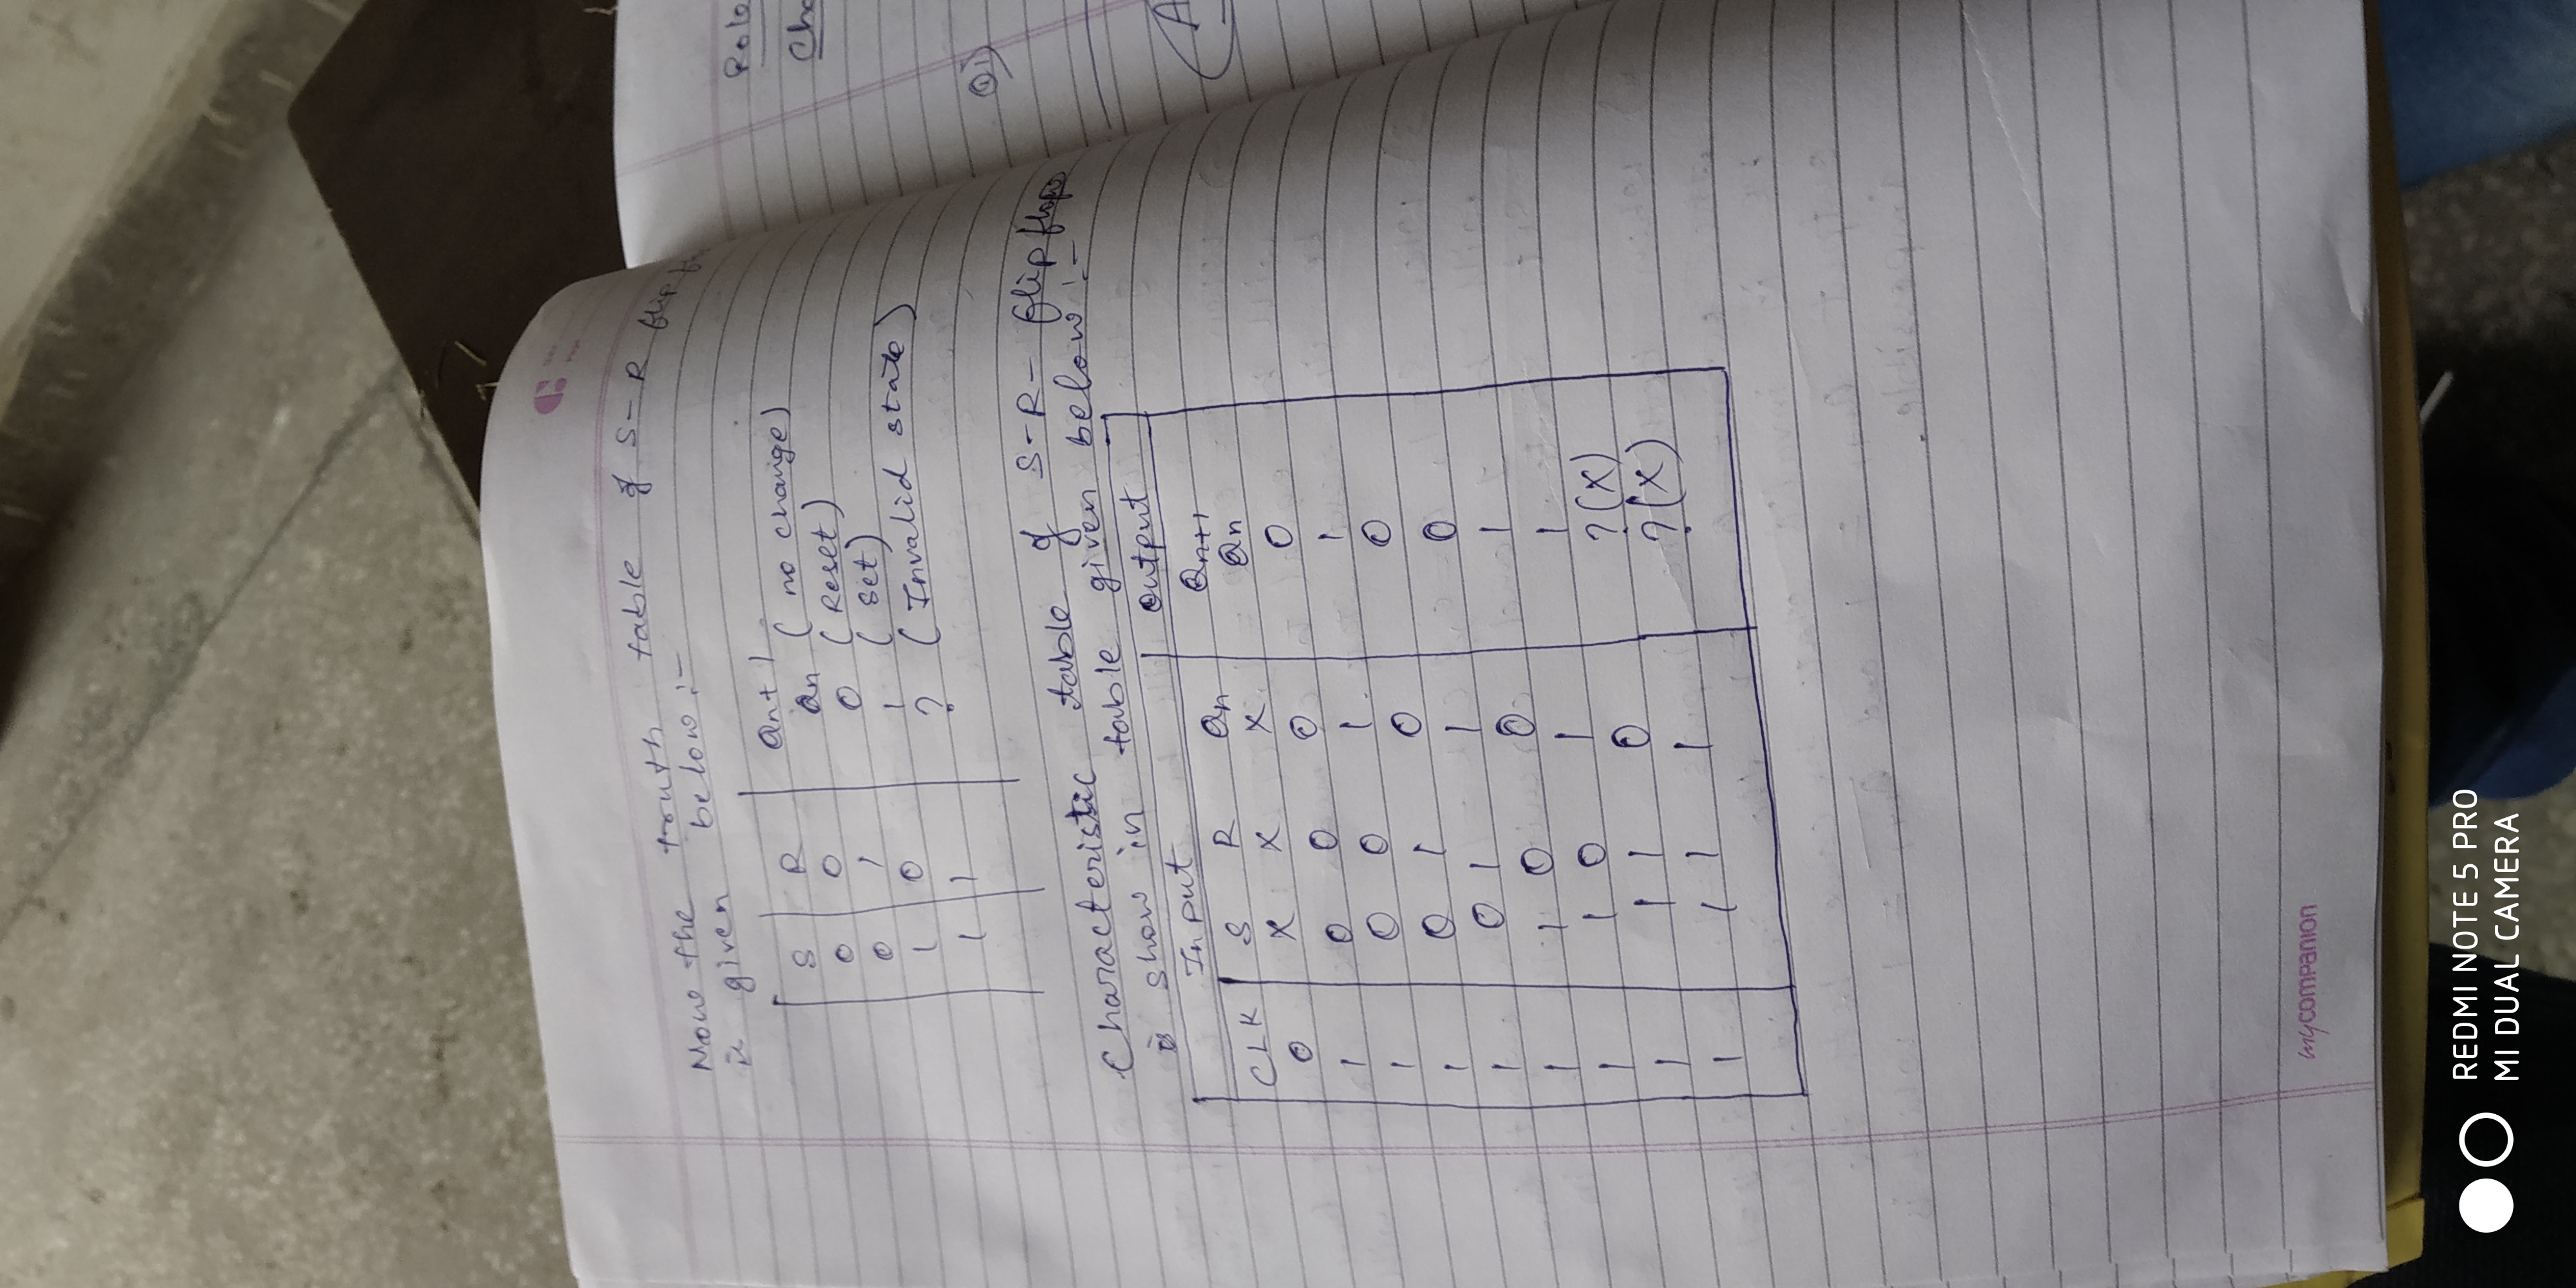 Now the truth table of S-R flip
is given below :-
S R Qn+1
0 0 Qn (no change)
0 1 0 (Reset)
1 0 1 (set)
1 1 ? (Invalid state)
Characteristic table of S-R- flip flops
is show in table given below :-
Input Output
CLK S R Qn Qn+1
0 X X X Qn
1 0 0 0 0
1 0 0 1 1
1 0 1 0 0
1 0 1 1 0
1 1 0 0 1
1 1 0 1 1
1 1 1 0 ?(X)
1 1 1 1 ?(X)
mycompanion
Role
Cha
Q1)
A
REDMI NOTE 5 PRO
MI DUAL CAMERA